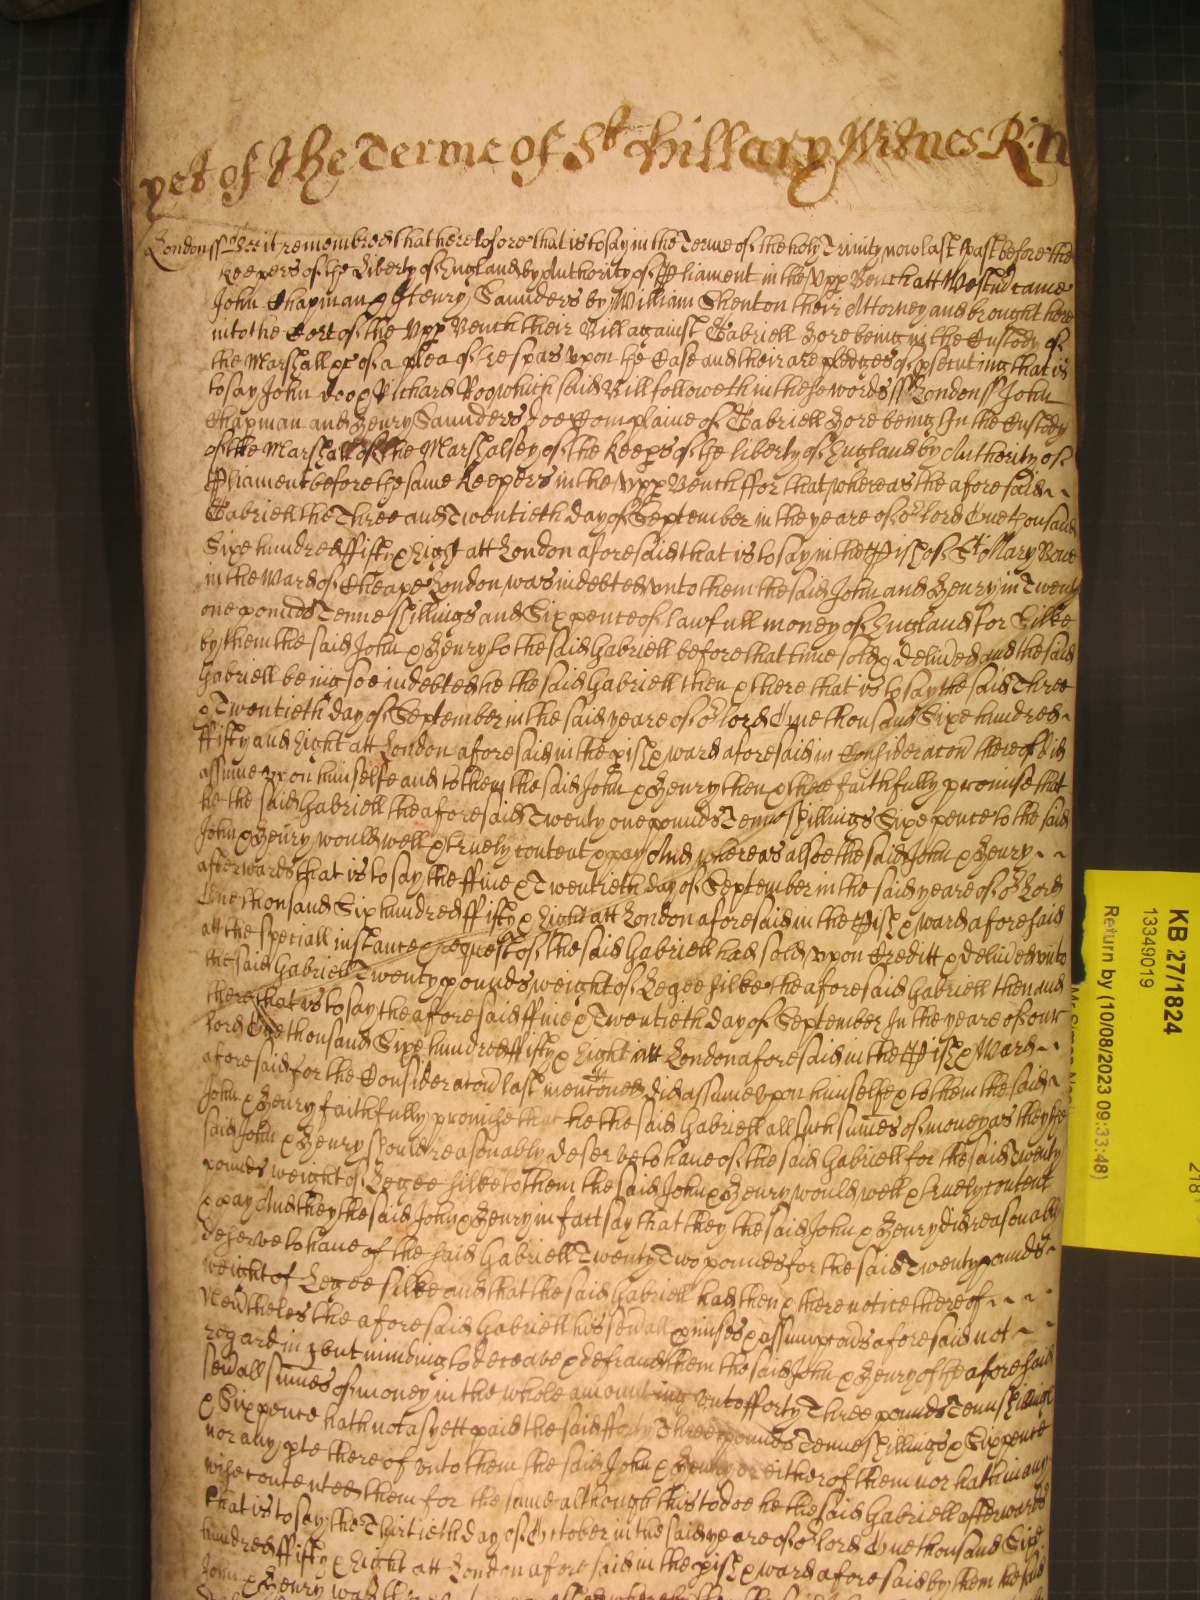 yet of the Terme of St Hillary Witnes R: N
London ss Bee it remembred that heretofore that is to say in the Terme of the holy Trinity now last past before the
Keepers of the Liberty of England by Authority of Pliament in the Upp Bench att Westm came
John Chapman & Henry Saunders by William Shenton their Attorney and brought here
into the Cort of the Upp Bench their Bill against Gabriell Bore being in the Custody of
the Marshall &c of a plea of trespas upon the Case and their are pledges of psecuting that is
to say John Doo & Richard Roo which said Bill followeth in these words ss London ss John
Chapman and Henry Saunders doe Complaine of Gabriell Bore being In the Custody
of the Marshall of the Marshalsey of the Keeps of the liberty of England by Authority of
Pliament before the same Keepers in the Upp Bench ffor that whereas the aforesaid
Gabriell the Three and Twentieth day of September in the yeare of or lord One thousand
Sixe hundred ffifty & Eight att London aforesaid that is to say in the Pish of St Mary Bowe
in the Ward of Cheape London was indebted unto them the said John and Henry in Twenty
one pounds Tenne shillings and Six pence of lawfull money of England for Silke
by them the said John & Henry to the said Gabriell before that time sold & delived and the said
Gabriell being soe indebted he the said Gabriell then & there that is to say the said Three
& Twentieth day of September in the said yeare of or lord One thousand Sixe hundred
ffifty and Eight att London aforesaid in the pish & ward aforesaid in Consideracon thereof did
assume upon himselfe and to them the said John & Henry then & there faithfully promise that
he the said Gabriell the aforesaid Twenty one pounds Tenne shillings Sixe pence to the said
John & Henry would well & truely content & pay And whereas alsoe the said John & Henry
afterwards that is to say the ffive & Twentieth day of September in the said yeare of or Lord
One thousand Six hundred ffifty & Eight att London aforesaid in the Pish & ward aforesaid
att the speciall instance & request of the said Gabriell had sold upon Creditt & delived unto
the said Gabriell Twenty pounds weight of Legee silke the aforesaid Gabriell then and
there that is to say the aforesaid ffive & Twentieth day of September In the yeare of our
lord One thousand Sixe hundred ffifty & Eight att London aforesaid in the Pish & Ward
aforesaid for the Consideracon last mentoned did assume upon himselfe & to them the said
John & Henry faithfully promise that he the said Gabriell all such sumes of money as they the
said John & Henry should reasonably deserve to have of the said Gabriell for the said Twenty
pounds weight of Legee silke to them the said John & Henry would well & truely content
& pay And they the said John & Henry in fact say that they the said John & Henry did reasonably
deserve to have of the said Gabriell Twenty Two pounds for the said Twenty pounds
weight of Legee silke and that the said Gabriell had then & there notice thereof
Nevtheles the aforesaid Gabriell his sevall pmises & assumpcons aforesaid not
regarding but minding to deceave & defraud them the said John & Henry of the aforesaid
sevall sumes of money in the whole amounting unto fforty Three pounds Tenn shillings
& Sixpence hath not as yett paid the said fforty Three pounds Tenne shillings & Sixpence
nor any pte thereof unto them the said John & Henry or either of them nor hath in any
wise contented them for the same although this to doe he the said Gabriell afterwards
that is to say the Thirtieth day of October in the said yeare of or lord One thousand Sixe
hundred ffifty & Eight att London aforesaid in the pish & ward aforesaid by them the said
John & Henry was
KB 27/1824
13349019
Return by (10/08/2023 09:33:48)